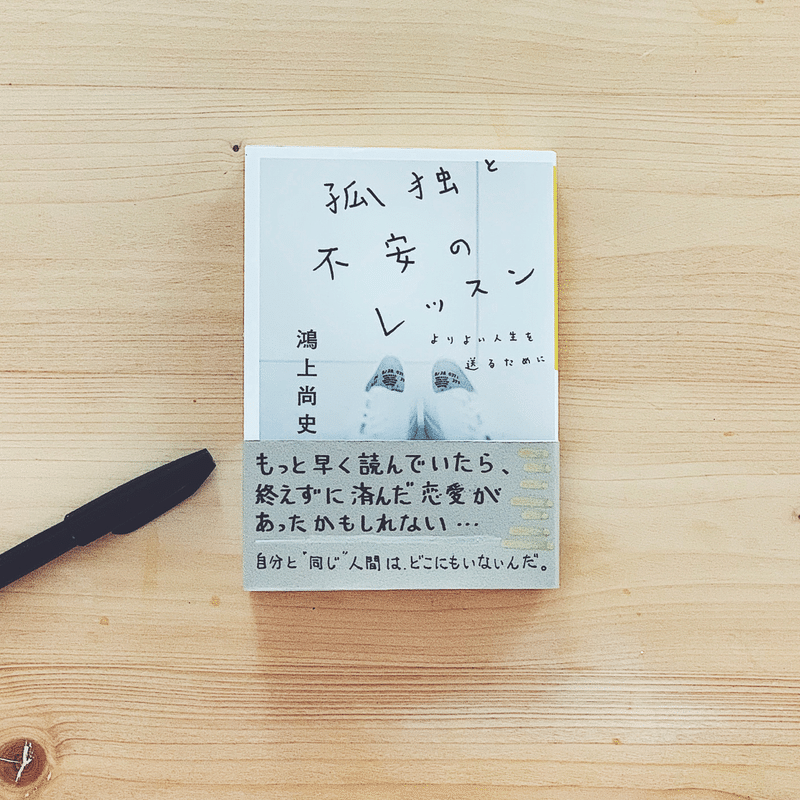 孤独と
不安の
レッスン
よりよい人生を
送るために
鴻上尚史
もっと早く読んでいたら、
終えずに済んだ恋愛が
あったかもしれない…
自分と"同じ"人間は、どこにもいないんだ。